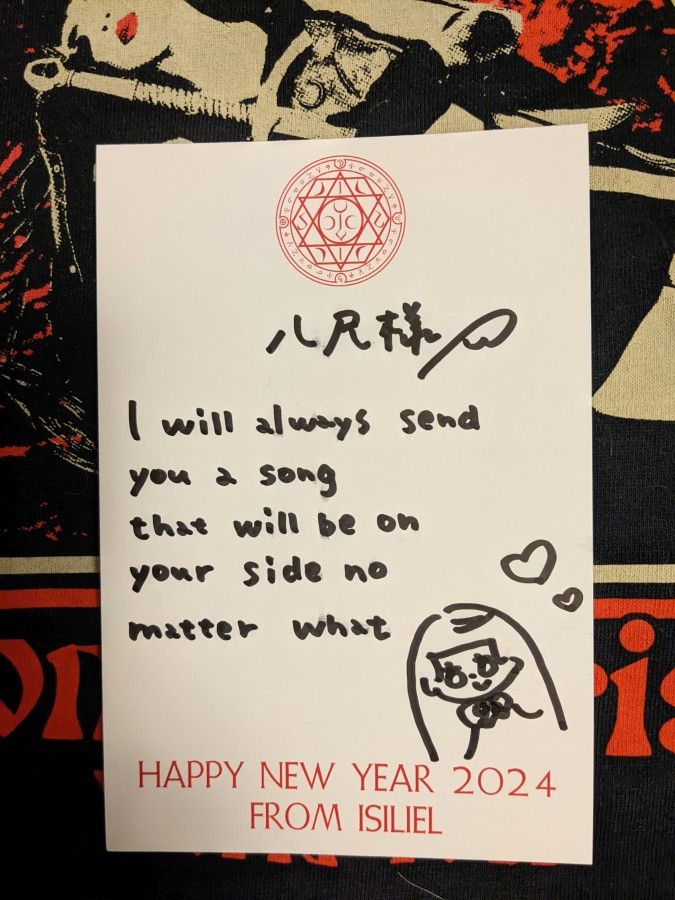 八尺様へ
I will always send
you a song
that will be on
your side no
matter what
HAPPY NEW YEAR 2024
FROM ISILIEL